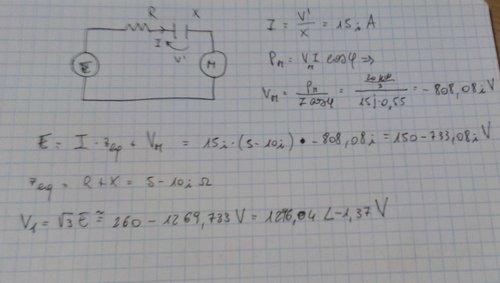 R X
I = V'/X = 15i A
I
V'
E
M
Pm = Vm I cosφ ⇒
Vm = Pm / I cosφ = (20kW/3) / 15j·0,55 = -808,08i V
E = I · Zeq + Vm = 15i·(5-10i) · -808,08i = 150 - 733,08i V
Zeq = R + X = 5 - 10i Ω
V1 = √3 E ≅ 260 - 1269,733 V = 1296,04 ∠-1,37 V